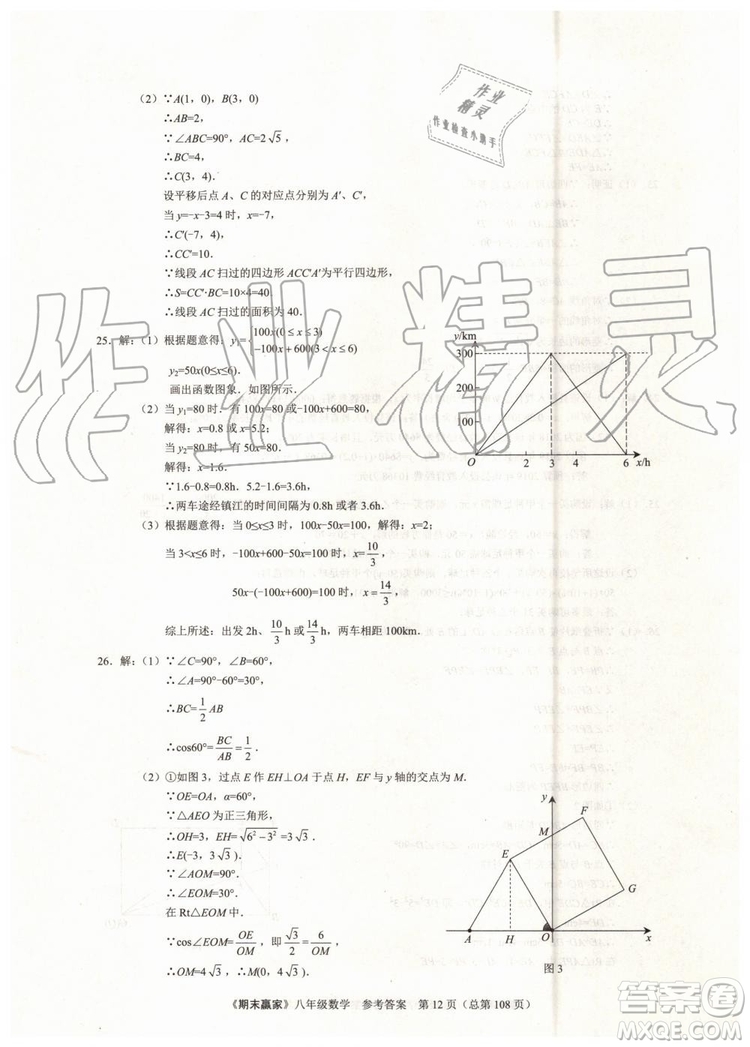 作业
精灵
作业检查小助手
(2) ∵A(1, 0), B(3, 0)
∴AB=2,
∵∠ABC=90°, AC=2√5,
∴BC=4,
∴C(3, 4).
设平移后点 A、C 的对应点分别为 A′、C′,
当 y=-x-3=4 时, x=-7,
∴C′(-7, 4),
∴CC′=10.
∵线段 AC 扫过的四边形 ACC′A′为平行四边形,
∴S=CC′·BC=10×4=40.
∴线段 AC 扫过的面积为 40.
25. 解: (1) 根据题意得: y₁={100x(0≤x≤3) -100x+600(3<x≤6)
y₂=50x(0≤x≤6).
画出函数图象. 如图所示.
(2) 当 y₁=80 时. 有 100x=80或-100x+600=80,
解得: x=0.8 或 x=5.2;
当 y₂=80 时. 有 50x=80.
解得: x=1.6.
∵1.6-0.8=0.8. 5.2-1.6=3.6h.
∴两车途经镇江的时间间隔为 0.8h 或者 3.6h.
(3) 根据题意得: 当 0≤x≤3 时, 100x-50x=100, 解得: x=2;
当 3<x≤6 时, -100x+600-50x=100 时, x=10/3
50x-(-100x+600)=100 时, x=14/3,
综上所述: 出发 2h、10/3 h 或 14/3 h, 两车相距 100km.
y/km
300
200
100
O 2 3 4 6 x/h
26. 解: (1) ∵∠C=90°, ∠B=60°,
∴∠A=90°-60°=30°,
∴BC=1/2 AB
∴cos60°=BC/AB=1/2.
(2) ①如图 3, 过点 E 作 EH⊥OA 于点 H, EF 与 y 轴的交点为 M.
∵OE=OA, α=60°,
∵△AEO 为正三角形,
∴OH=3, EH=√(6²-3²)=3√3.
∴E(-3, 3√3).
∵∠AOM=90°.
∴∠EOM=30°.
在 Rt△EOM 中.
∵cos∠EOM=OE/OM, 即 √3/2=6/OM.
∴OM=4√3, ∴M(0, 4√3).
y
F
M
E
G
A H O x
图 3
《期末赢家》八年级数学 参考答案 第 12 页 (总第 108 页)
作业精灵
答案圈
MXQE.COM